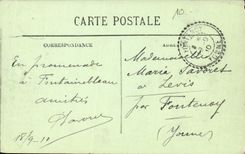 10-
CARTE POSTALE
CORRESPONDANCE
En promenade
à Fontainebleau
amitiés
18/9 10
Mademoiselle
Maria
à Levis
par Fontenoy
(Yonne)